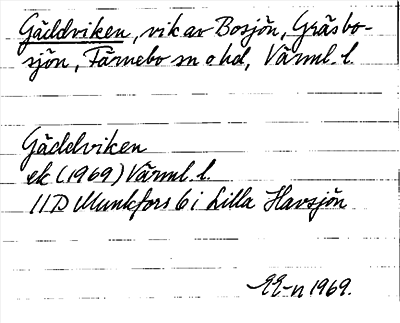 Gäddviken, vik av Bosjön, Gräsbo-
sjön, Färnebo sn o hd, Värml. l.
Gäddviken
ek (1969) Värml. l.
11D Munkfors 6i Lilla Havsjön
EE-n 1969.